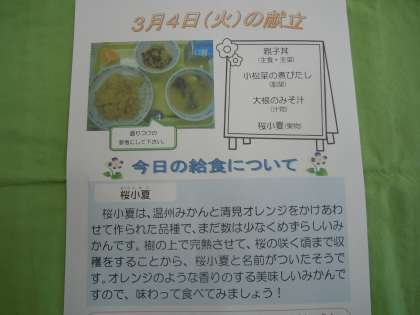 3月4日(火)の献立
親子丼
(主食・主菜)
小松菜の煮びたし
(副菜)
大根のみそ汁
(汁物)
桜小夏(果物)
盛りつけの
参考にして下さい。
今日の給食について
桜小夏
桜小夏は、温州みかんと清見オレンジをかけあわ
せて作られた品種で、まだ数は少なくめずらしいみ
かんです。樹の上で完熟させて、桜の咲く頃まで収
穫をすることから、桜小夏と名前がついたそうで
す。オレンジのような香りのする美味しいみかんで
すので、味わって食べてみましょう!